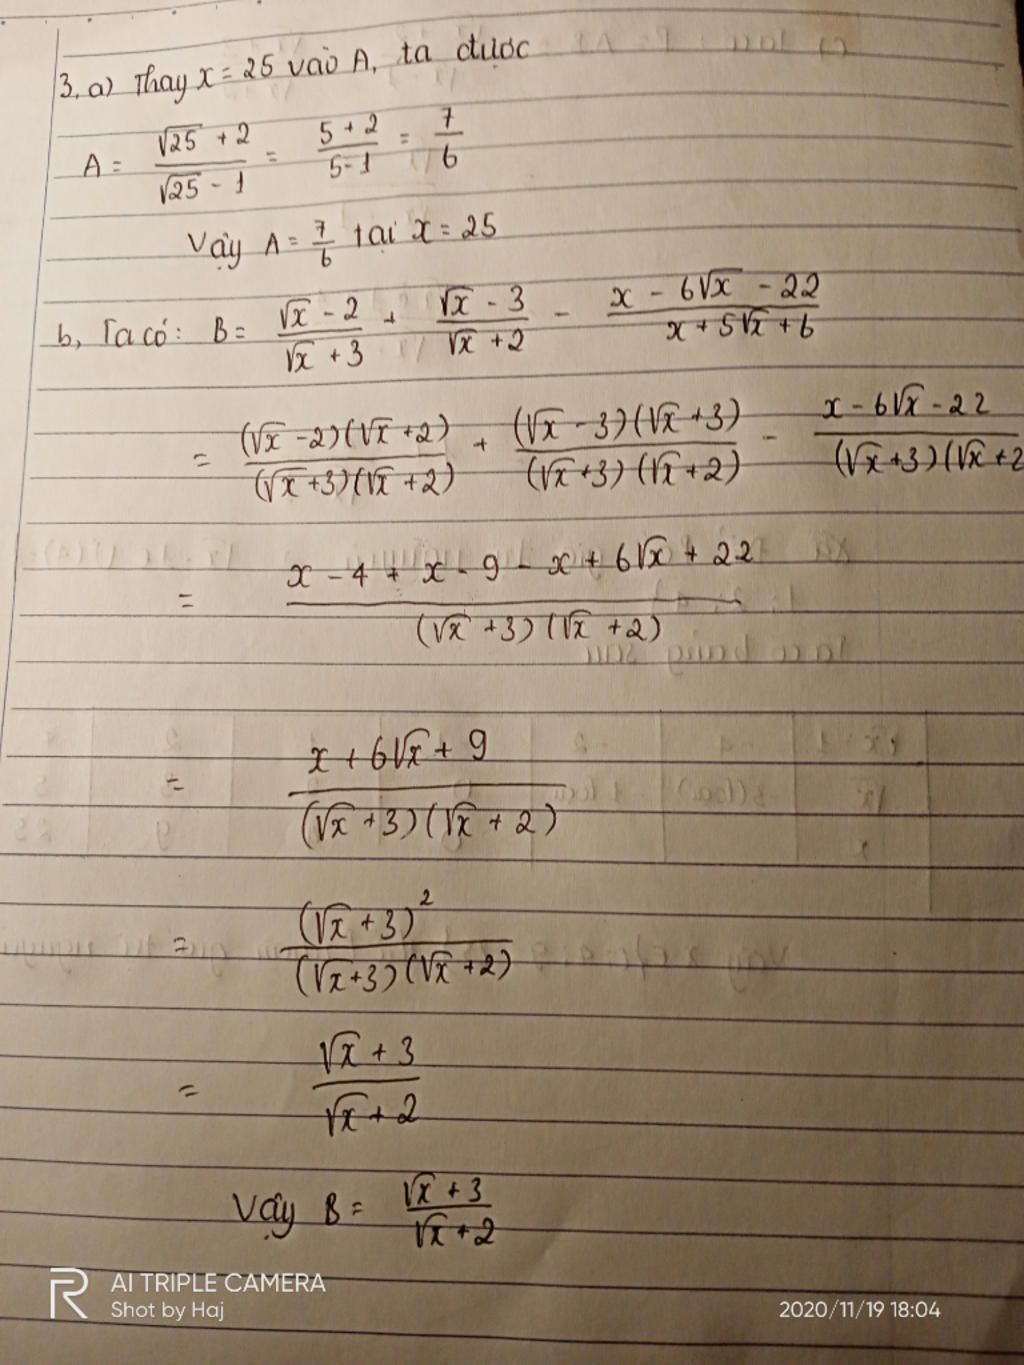 3, a) Thay x = 25 vào A, ta được
A = (√25 + 2)/(√25 - 1) = (5 + 2)/(5 - 1) = 7/6
Vậy A = 7/6 tại x = 25
b, Ta có: B = (√x - 2)/(√x + 3) + (√x - 3)/(√x + 2) - (x - 6√x - 22)/(x + 5√x + 6)
= ((√x - 2)(√x + 2))/((√x + 3)(√x + 2)) + ((√x - 3)(√x + 3))/((√x + 3)(√x + 2)) - (x - 6√x - 22)/((√x + 3)(√x + 2
= (x - 4 + x - 9 - x + 6√x + 22)/((√x + 3)(√x + 2))
= (x + 6√x + 9)/((√x + 3)(√x + 2))
= (√x + 3)²/((√x + 3)(√x + 2))
= (√x + 3)/(√x + 2)
Vậy B = (√x + 3)/(√x + 2)
AI TRIPLE CAMERA
Shot by Haj
2020/11/19 18:04